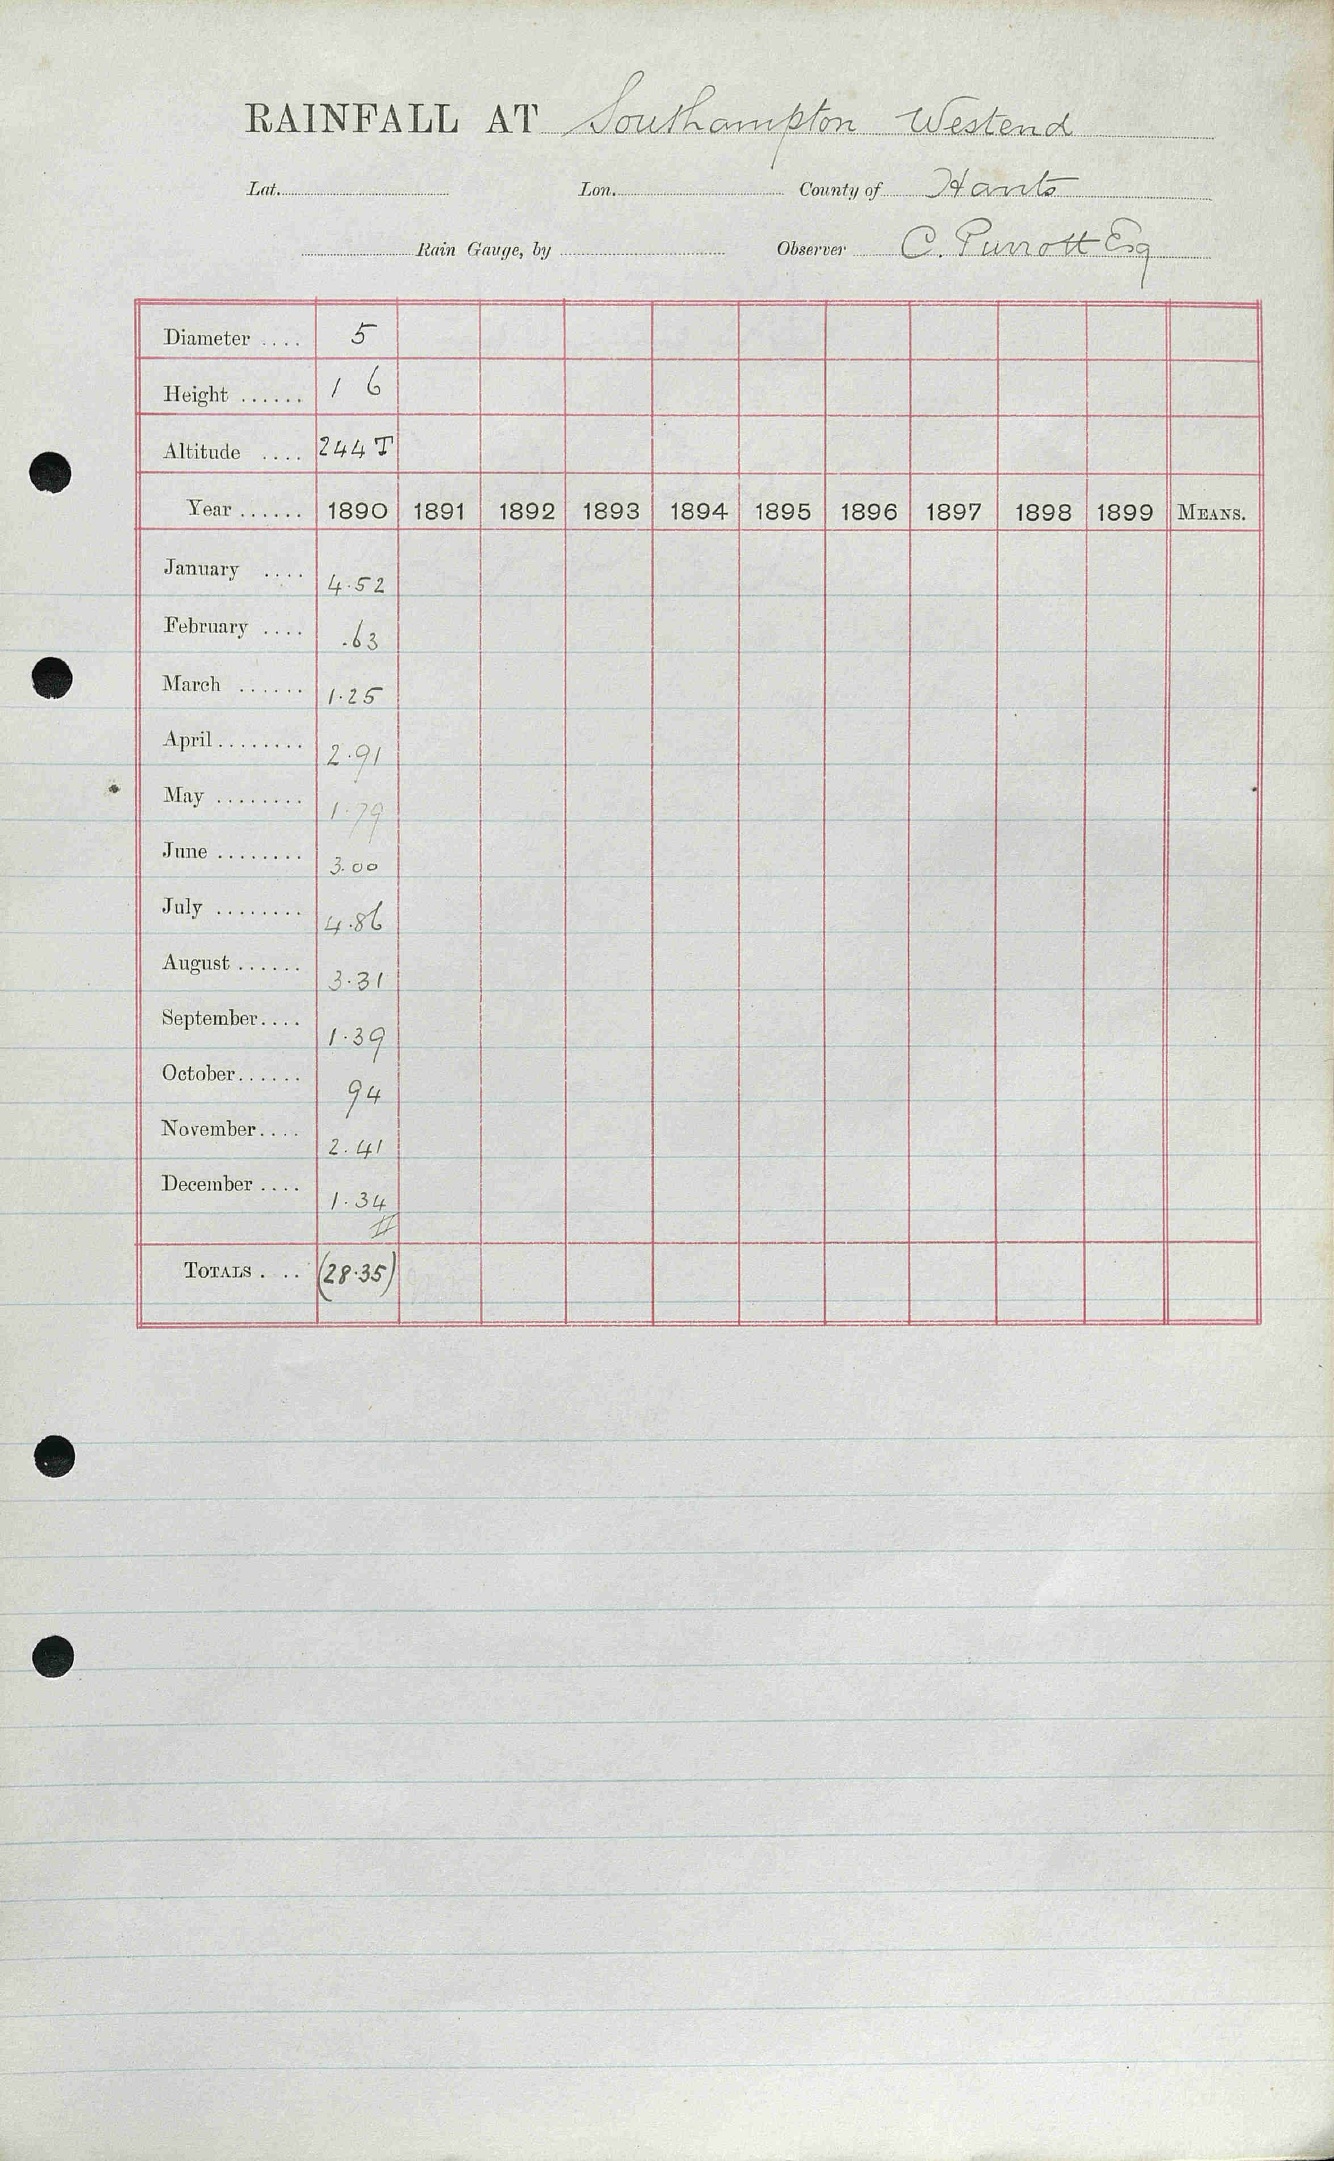 RAINFALL AT Southampton Westend
Lat. Lon. County of Hants
Rain Gauge, by Observer C. Purrott Esq
Diameter .... 5
Height ...... 1 6
Altitude .... 244 T
Year ...... 1890 1891 1892 1893 1894 1895 1896 1897 1898 1899 MEANS.
January .... 4.52
February .... .63
March ...... 1.25
April ........ 2.91
May ........ 1.79
June ........ 3.00
July ........ 4.86
August ...... 3.31
September.... 1.39
October...... 94
November.... 2.41
December .... 1.34
TOTALS . .. (28.35)